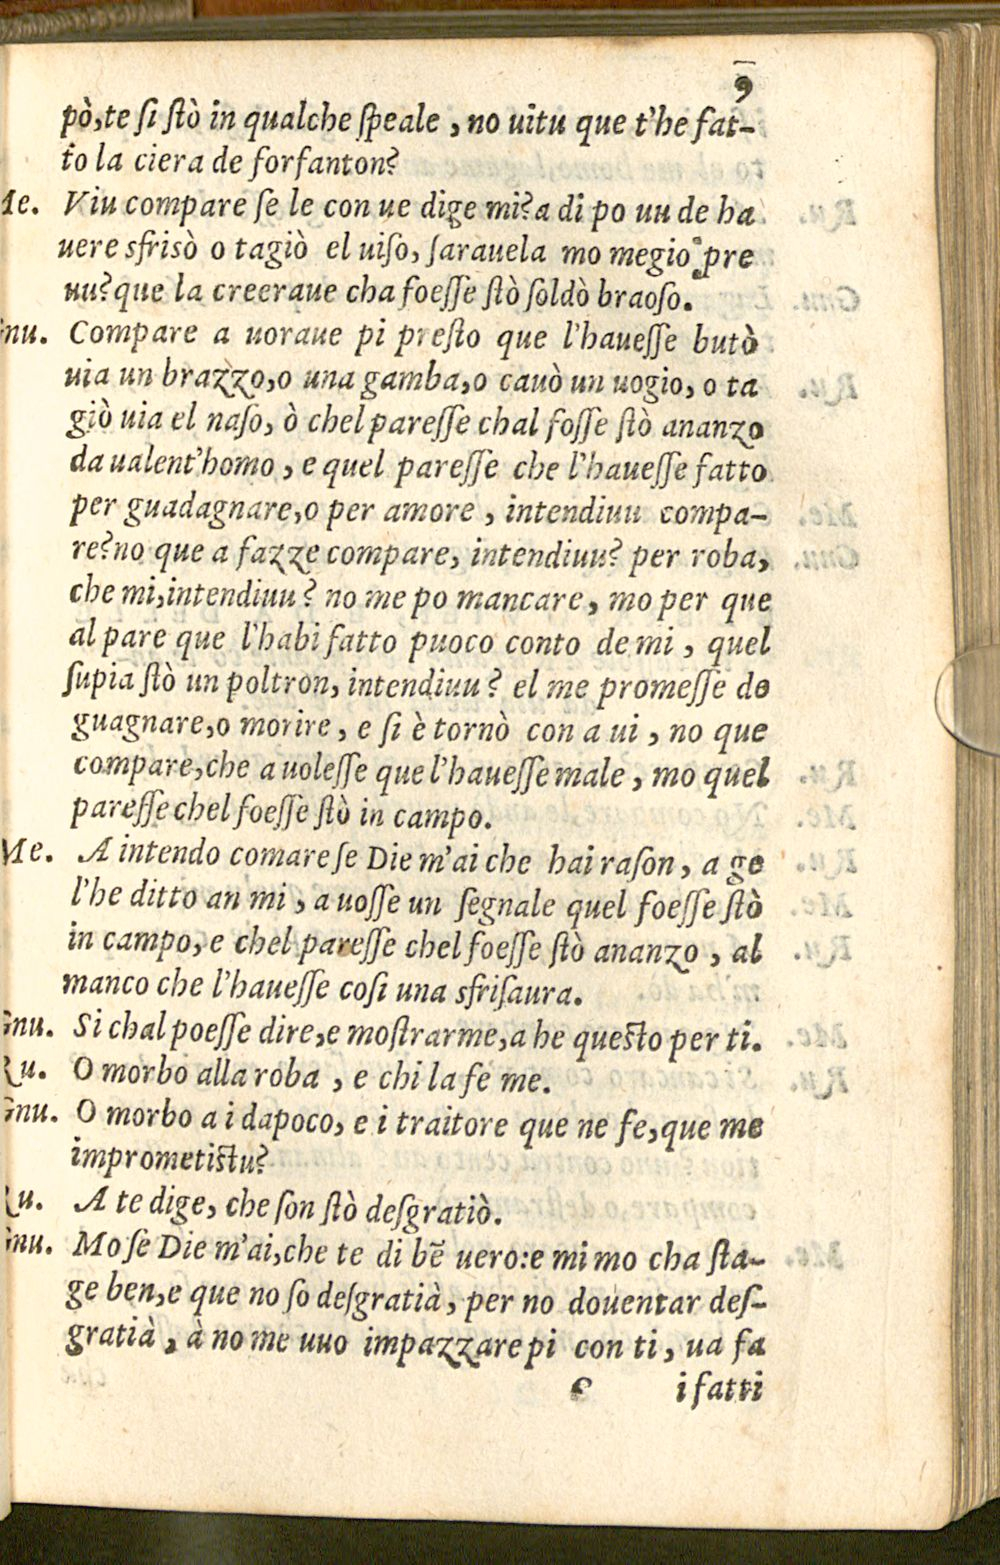 9
pò, te si ſtò in qualche ſpeale, no uitu que t'he fat-
to la ciera de forfanton?
Me. Viu compare ſe le con ue dige mi? a di po uu de ha
uere sfrisò o tagiò el uiſo, ſarauela mo megio pre
uu? que la creeraue cha foeſſe ſtò ſoldò braoſo.
Gnu. Compare a uoraue pi preſto que l'haueſſe butò
uia un brazzo, o una gamba, o cauò un uogio, o ta
giò uia el naſo, ò chel pareſſe chal foſſe ſtò ananzo
da ualent'homo, e quel pareſſe che l'haueſſe fatto
per guadagnare, o per amore, intendiuu compa-
re? no que a fazze compare, intendiuu? per roba,
che mi, intendiuu? no me po mancare, mo per que
al pare que l'habi fatto puoco conto de mi, quel
ſupia ſtò un poltron, intendiuu? el me promeſſe de
guagnare, o morire, e ſi è tornò con a ui, no que
compare, che a uoleſſe que l'haueſſe male, mo quel
pareſſe chel foeſſe ſtò in campo.
Me. A intendo comare ſe Die m'ai che hai raſon, a ge
l'he ditto an mi, a uoſſe un ſegnale quel foeſſe ſtò
in campo, e chel pareſſe chel foeſſe ſtò ananzo, al
manco che l'haueſſe coſi una sfriſaura.
Gnu. Si chal poeſſe dire, e moſtrarme, a he queſto per ti.
Ru. O morbo alla roba, e chi la fe me.
Gnu. O morbo a i dapoco, e i traitore que ne fe, que me
imprometiſtu?
Ru. A te dige, che ſon ſtò deſgratiò.
Gnu. Mo ſe Die m'ai, che te di bē uero: e mi mo cha ſta-
ge ben, e que no ſo deſgratià, per no douentar deſ-
gratià, à no me uuo impazzare pi con ti, ua fa
i fatti